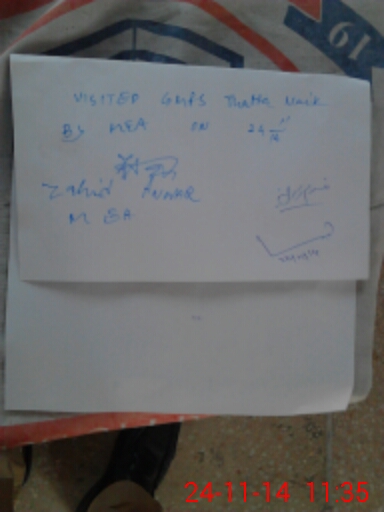 19
VISITED GMPS Thatha Naik
By MEA ON 24
Zahid ANWAR
MEA
24-11-14 11:35